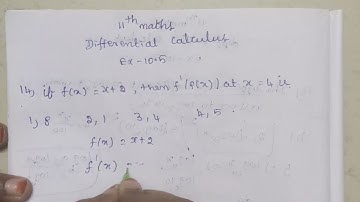 11th maths
Differential Calculus
Ex - 10.5
14, if f(x) = x+2, then f'(f(x)) at x = 4 is
1, 8 2, 1 3, 4 4, 5
f(x) = x+2
f'(x) =